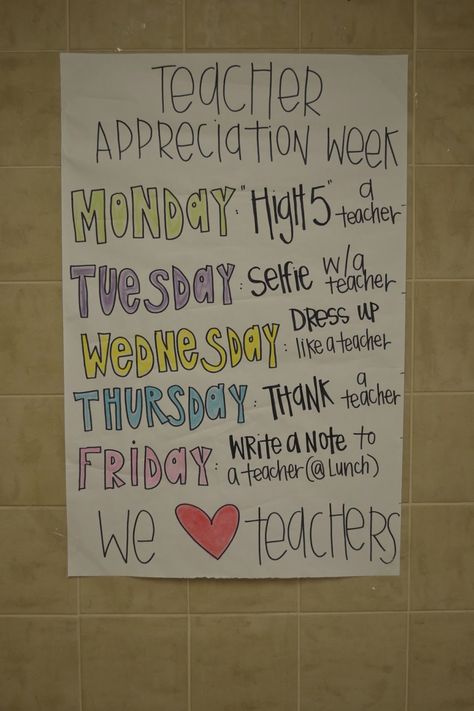 TEACHER
APPRECIATION WEEK
MONDAY: "HIGH 5" a teacher
TUESDAY: Selfie w/a teacher
WEDNESDAY: DRESS UP like a teacher
THURSDAY: THANK a teacher
FRIDAY: WRITE a NOTE to a teacher (@ Lunch)
We ♥ teachers